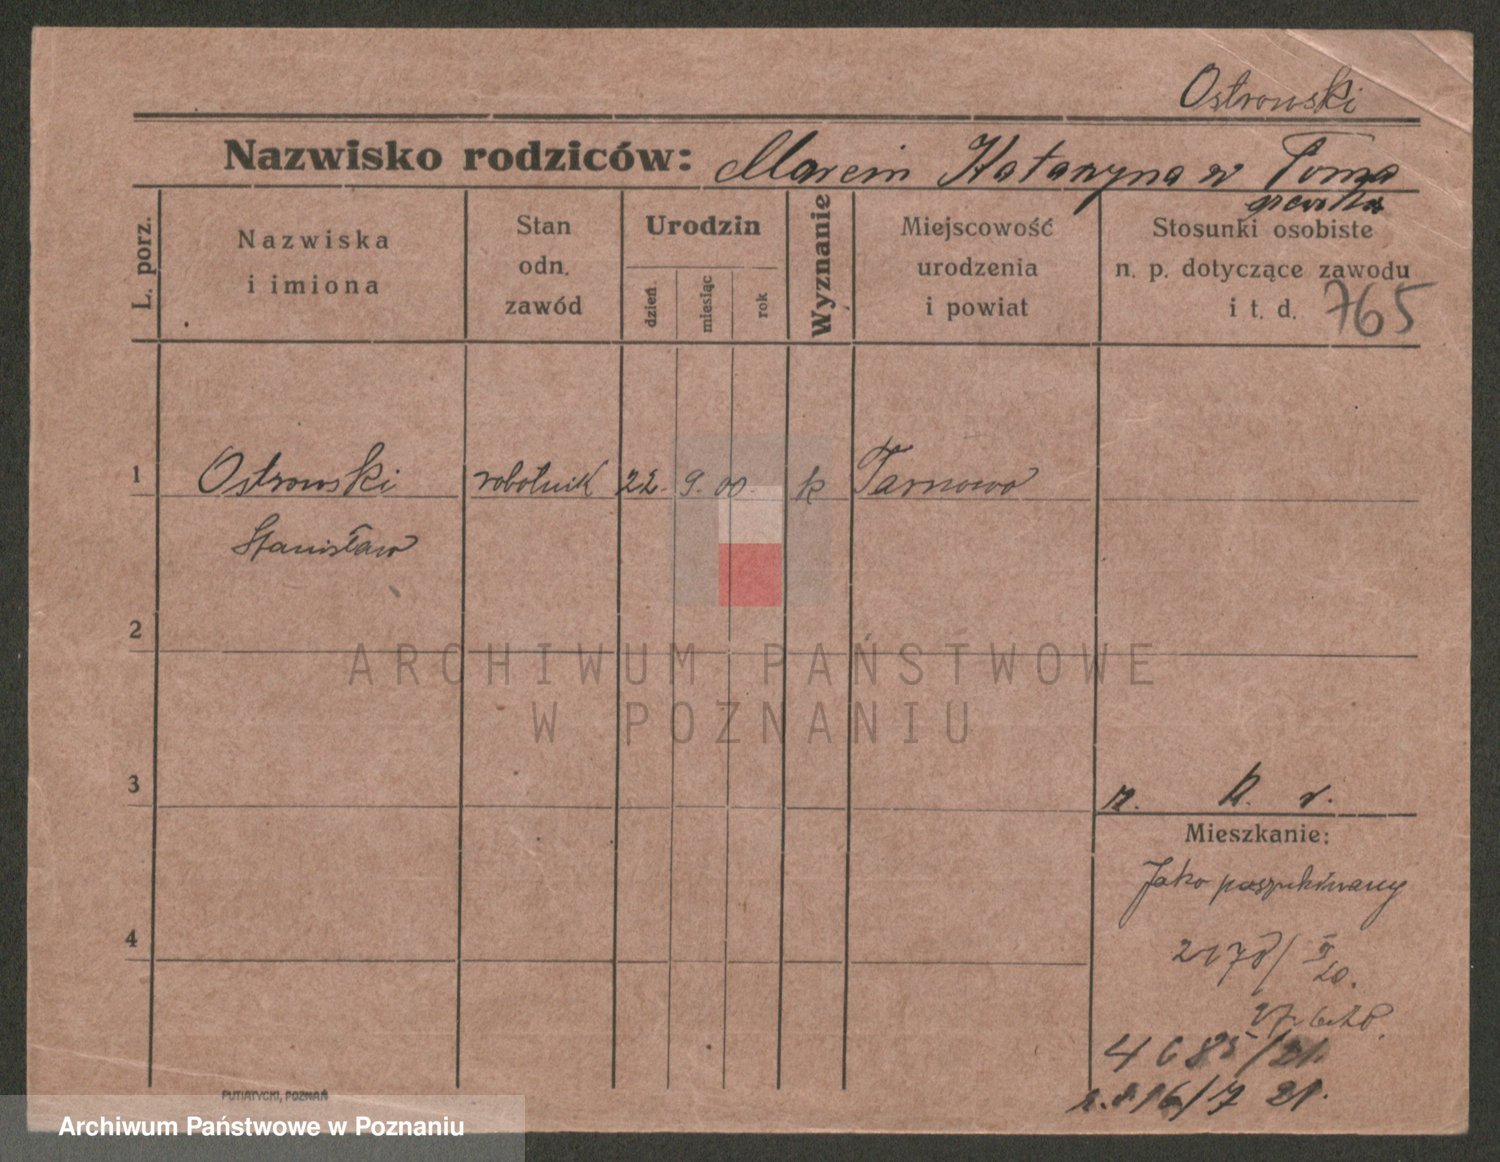 Ostrowski
Nazwisko rodziców: Marcin Katarzyna w
L. porz.
Nazwiska
i imiona
Stan
odn.
zawód
Urodzin
dzień.
miesiąc
rok
Wyznanie
Miejscowość
urodzenia
i powiat
Stosunki osobiste
n. p. dotyczące zawodu
i t. d. 765
1 Ostrowski robotnik 22. 9. 00. k Tarnowo
Stanisław
2
ARCHIWUM PAŃSTWOWE
W POZNANIU
3
Mieszkanie:
Jako poszukiwany
4
4685/21.
PUTIATYCKI, POZNAŃ
Archiwum Państwowe w Poznaniu